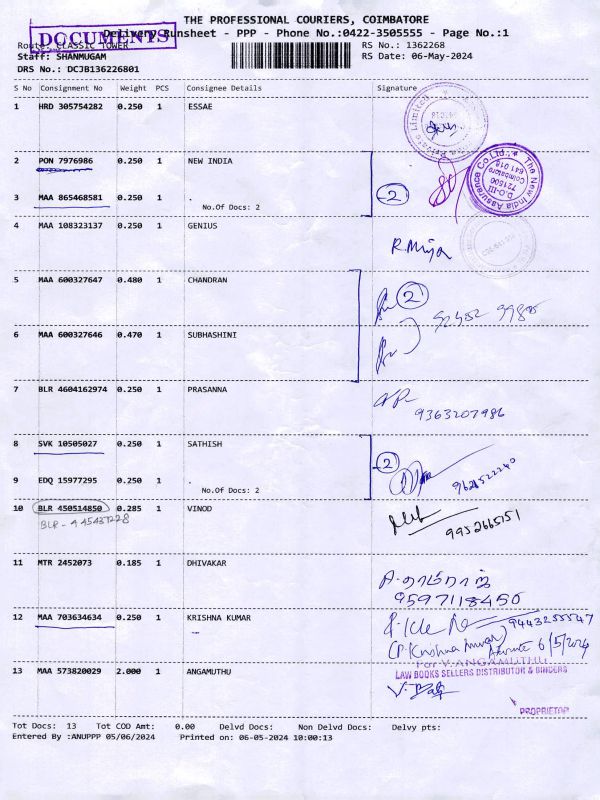 THE PROFESSIONAL COURIERS, COIMBATORE
DOCUMENTS
Delivery Runsheet - PPP - Phone No.:0422-3505555 - Page No.:1
Route: CLASSIC TOWER RS No.: 1362268
Staff: SHANMUGAM RS Date: 06-May-2024
DRS No.: DCJB136226801
S No Consignment No Weight PCS Consignee Details Signature
1 HRD 305754282 0.250 1 ESSAE
2 PON 7976986 0.250 1 NEW INDIA
The New India Assurance Co.Ltd.,
D.O-III
721506
Coimbatore
641 018
3 MAA 865468581 0.250 1 .
No.Of Docs: 2
2
4 MAA 108323137 0.250 1 GENIUS
5 MAA 600327647 0.480 1 CHANDRAN
2
6 MAA 600327646 0.470 1 SUBHASHINI
7 BLR 4604162974 0.250 1 PRASANNA
9363207986
8 SVK 10505027 0.250 1 SATHISH
2
9 EDQ 15977295 0.250 1 .
No.Of Docs: 2
10 BLR 450514850 0.285 1 VINOD
9952665151
11 MTR 2452073 0.185 1 DHIVAKAR
9597118450
12 MAA 703634634 0.250 1 KRISHNA KUMAR
9443255547
(P. Krishna Kumar)
6/5/2024
For V.ANGAMUTHU
13 MAA 573820029 2.000 1 ANGAMUTHU
LAW BOOKS SELLERS DISTRIBUTOR & BINDERS
PROPRIETOR
Tot Docs: 13 Tot COD Amt: 0.00 Delvd Docs: Non Delvd Docs: Delvy pts:
Entered By :ANUPPP 05/06/2024 Printed on: 06-05-2024 10:00:13